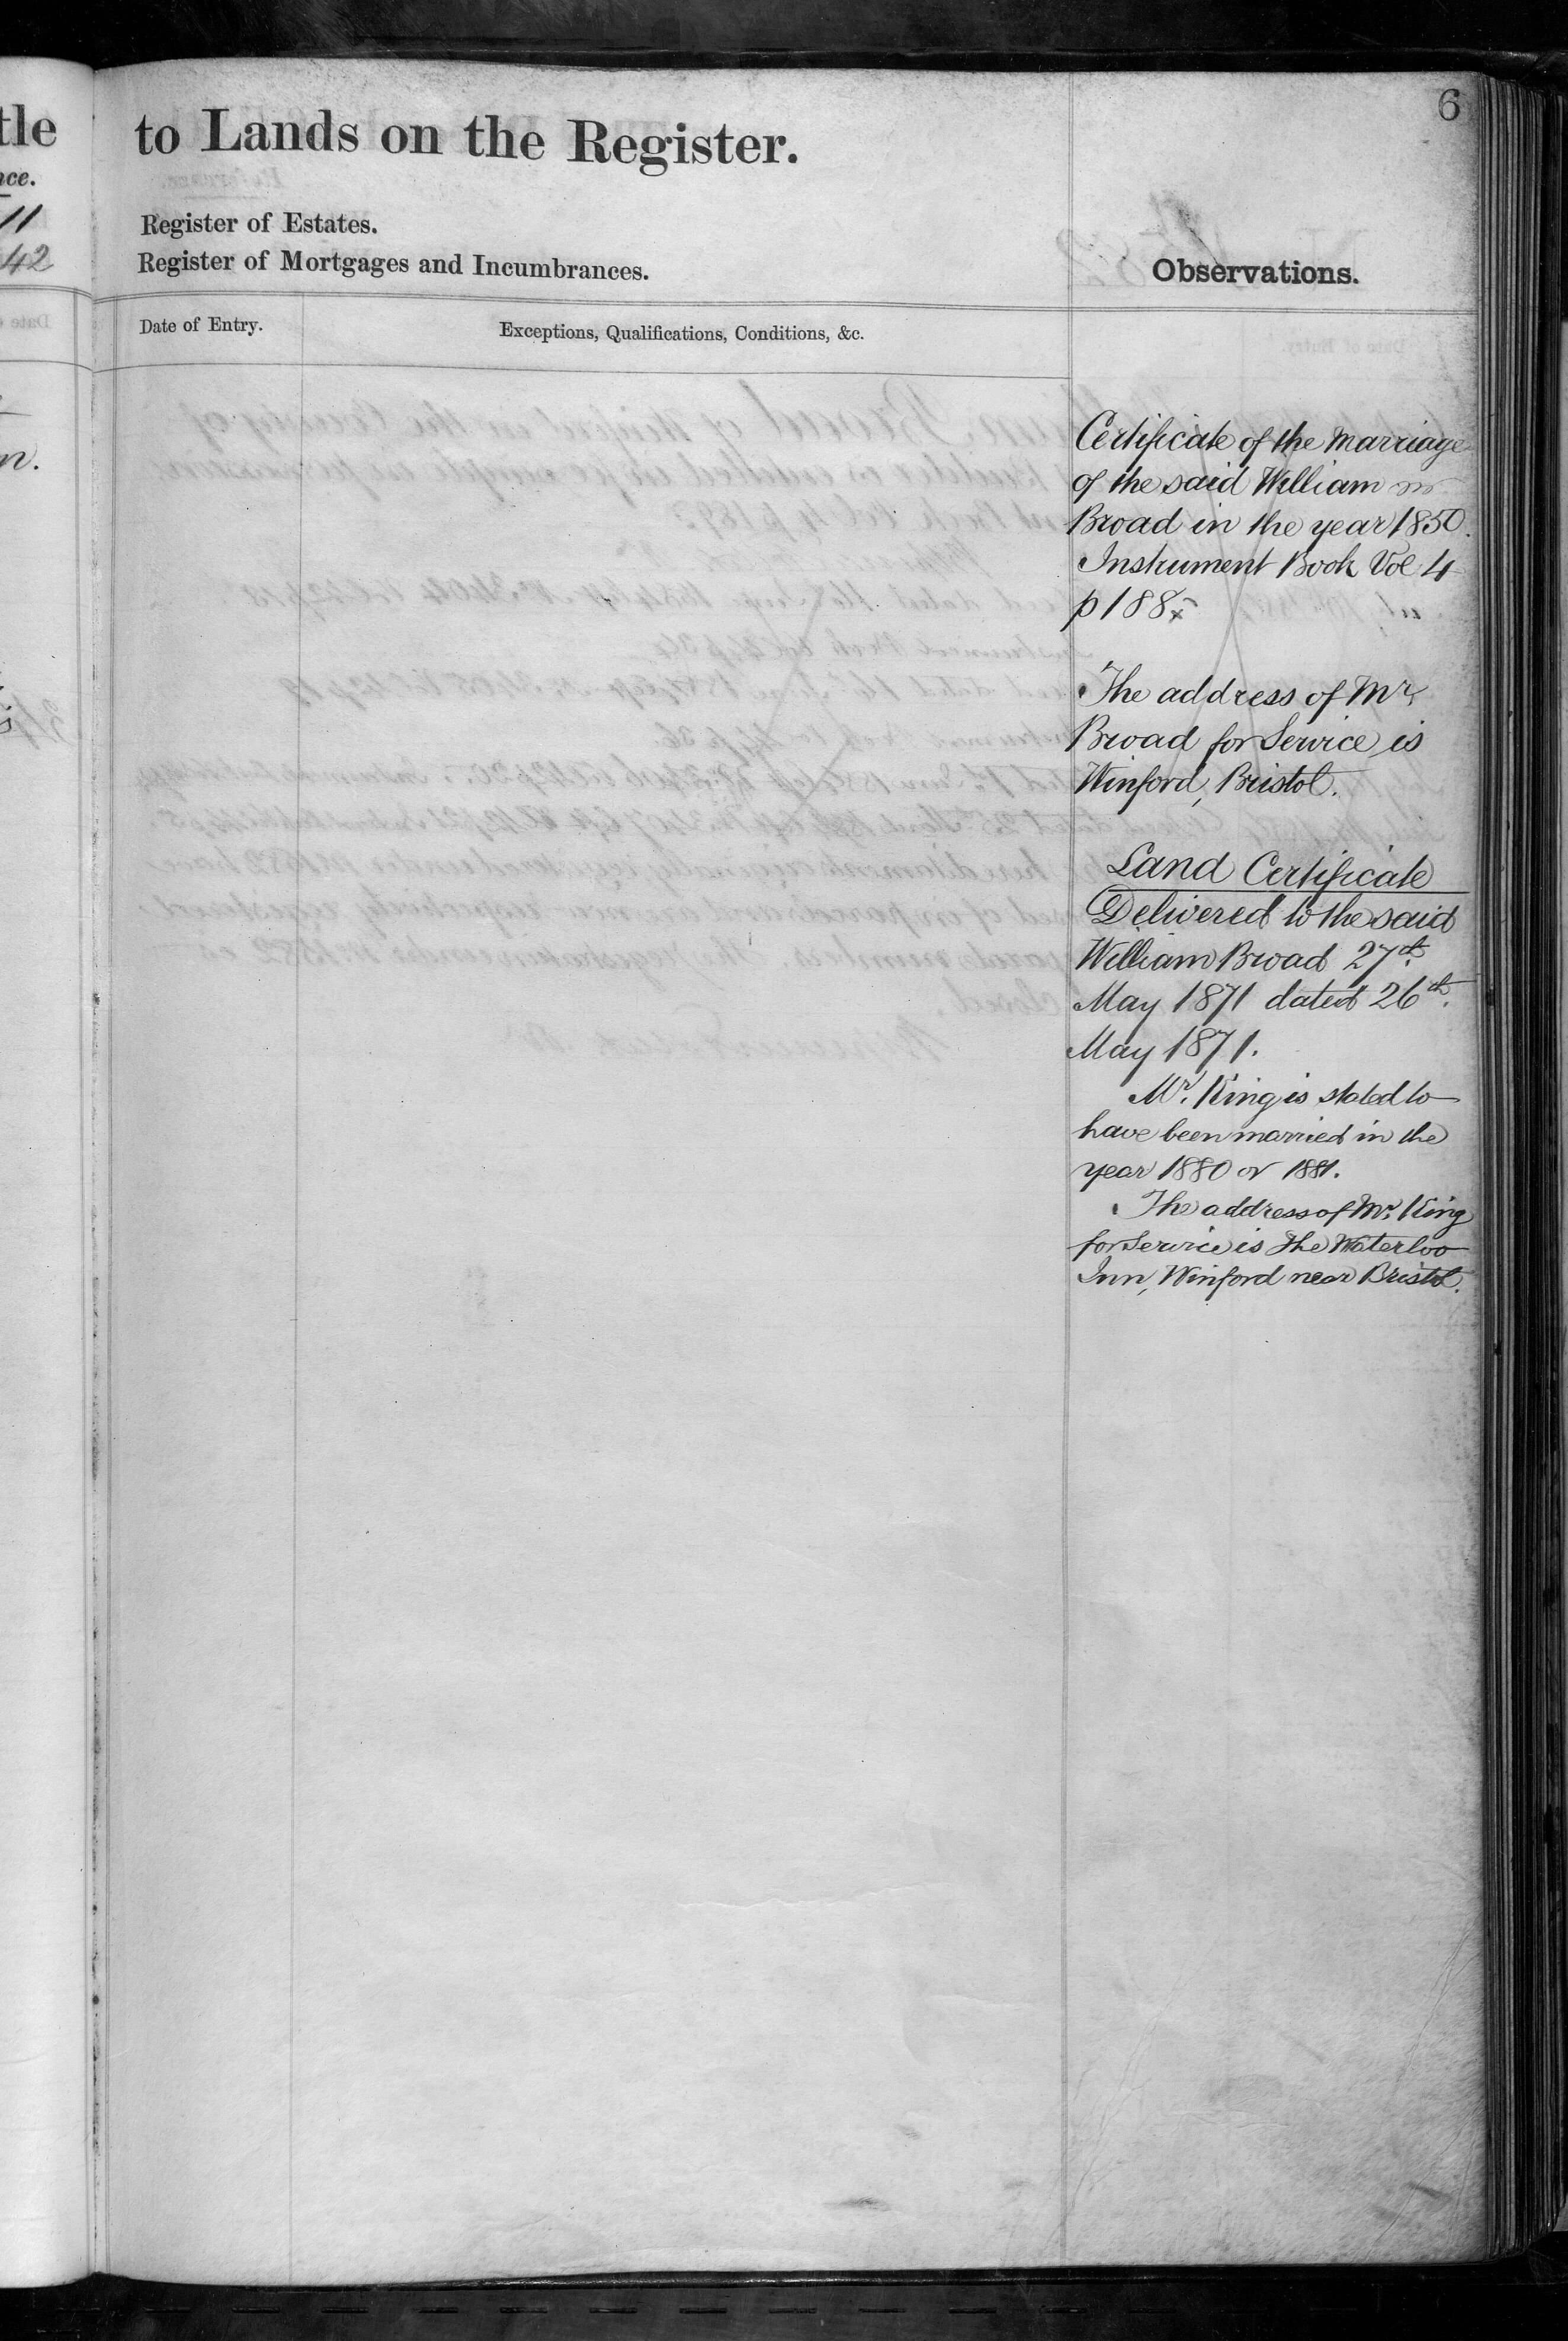 tle
nce.
11
42
n.
6
to Lands on the Register.
Register of Estates.
Register of Mortgages and Incumbrances.
Observations.
Date of Entry.
Exceptions, Qualifications, Conditions, &c.
Certificate of the Marriage
of the said William
Broad in the year 1850.
Instrument Book Vol 4
p 188
The address of Mr.
Broad for Service is
Winford, Bristol.
Land Certificate
Delivered to the said
William Broad 27th.
May 1871 dated 26th.
May 1871.
Mr. King is stated to
have been married in the
year 1880 or 1881.
The address of Mr. King
for Service is The Waterloo
Inn, Winford near Bristol.